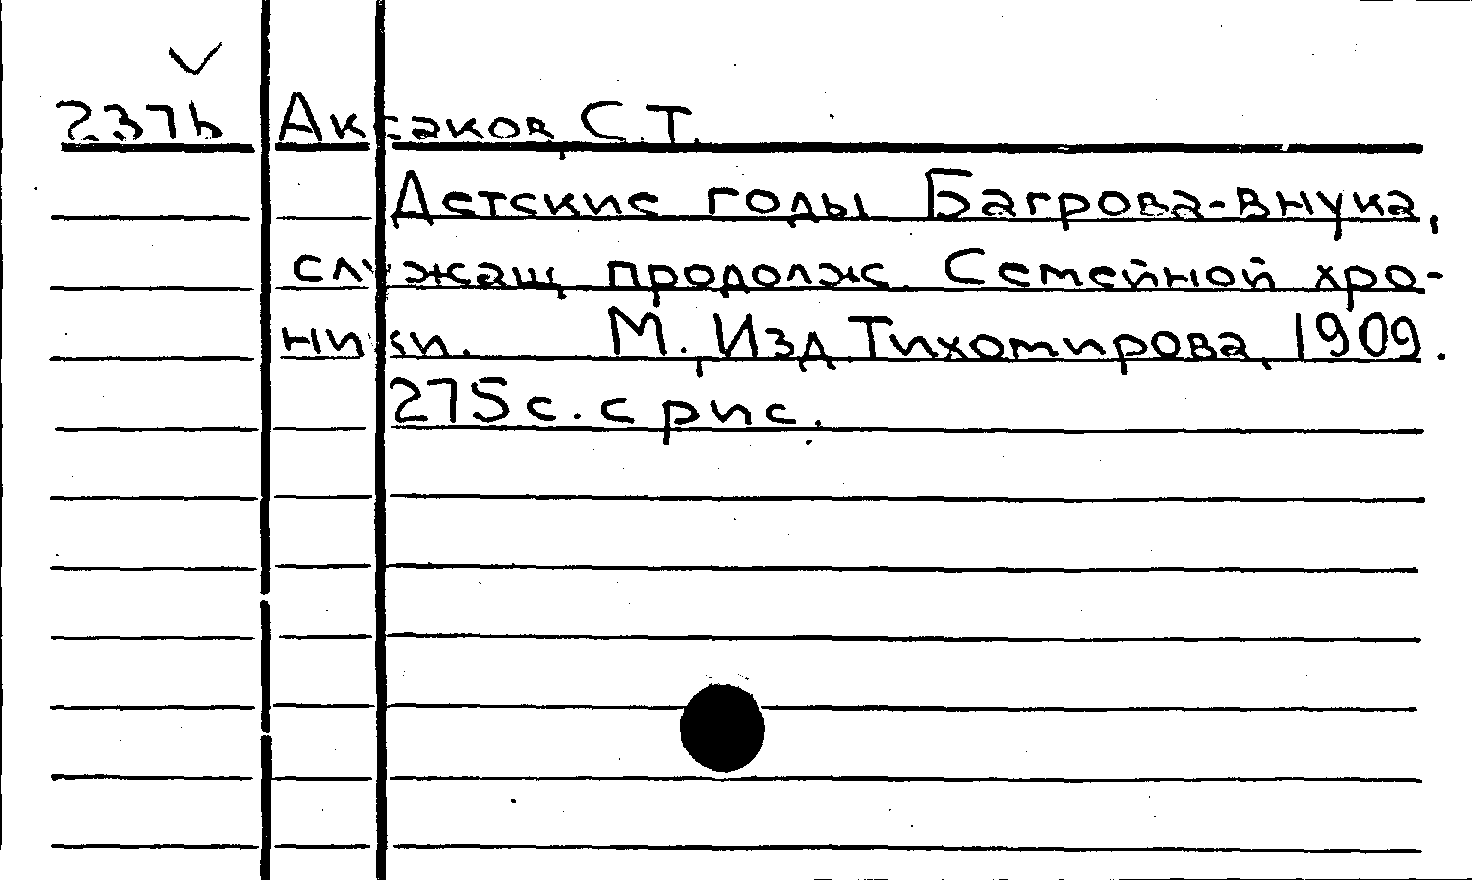 237b Аксаков, С.Т.
Детские годы Багрова-внука,
служащ. продолж. Семейной хро-
ники. М., Изд. Тихомирова, 1909.
275 с. с рис.